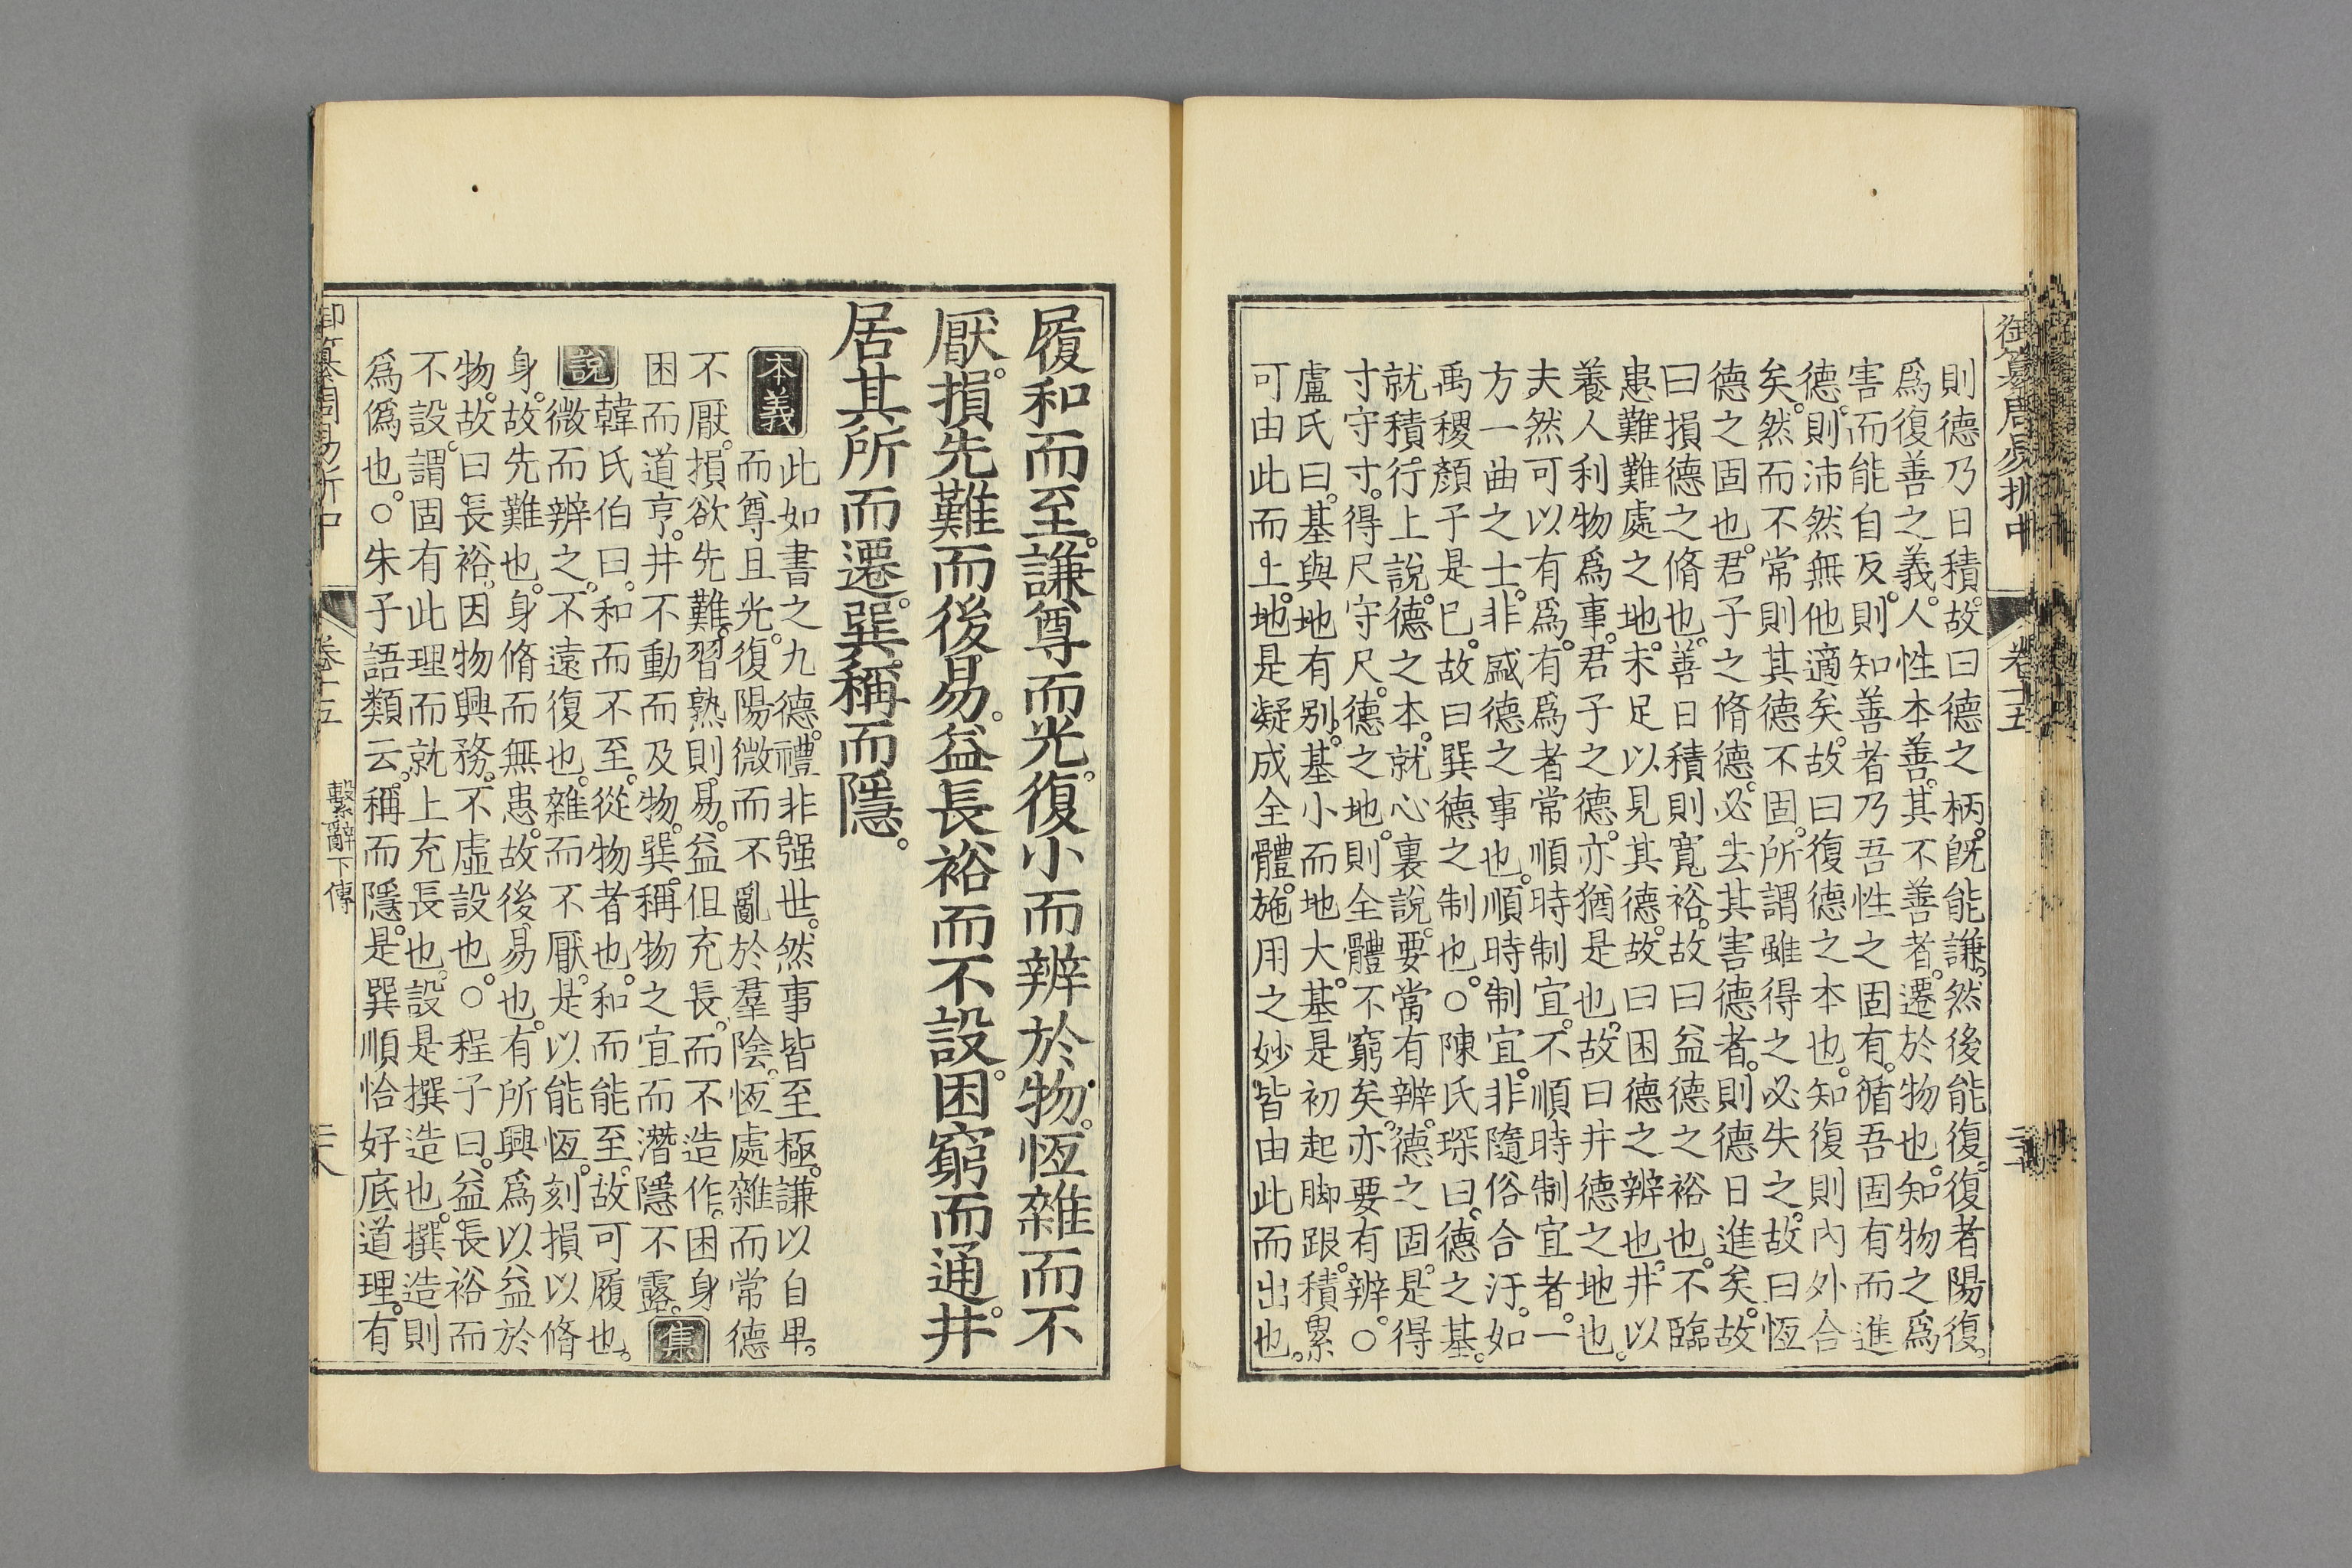 則德乃日積。故曰德之柄。既能謙。然後能復。復者陽復。
爲復善之義。人性本善。其不善者。遷於物也。知物之爲
害而能自反。則知善者乃吾性之固有。循吾固有而進
德。則沛然無他適矣。故曰復德之本也。知復則內外合
矣。然而不常則其德不固。所謂雖得之必失之。故曰恆
德之固也。君子之脩德。必去其害德者。則德日進矣。故
曰損德之脩也。善日積則寬裕。故曰益德之裕也。不臨
患難難處之地。未足以見其德。故曰困德之辨也。井以
養人利物爲事。君子之德。亦猶是也。故曰井德之地也。
夫然可以有爲。有爲者常順時制宜。不順時制宜者。一
方一曲之士。非盛德之事也。順時制宜。非隨俗合汙。如
禹稷顏子是巳。故曰巽德之制也。○陳氏琛曰。德之基。
就積行上說。德之本。就心裏說。要當有辨。德之固。是得
寸守寸。得尺守尺。德之地。則全體不窮矣。亦要有辨。○
盧氏曰。基與地有別。基小而地大。基是初起脚跟。積累
可由此而上。地是凝成全體。施用之妙。皆由此而出也。
履和而至。謙尊而光。復小而辨於物。恆雜而不
厭。損先難而後易。益長裕而不設。困窮而通。井
居其所而遷。巽稱而隱。
本義
此如書之九德。禮非强世。然事皆至極。謙以自卑。
而尊且光。復陽微而不亂於羣陰。恆處雜而常德
不厭。損欲先難。習熟則易。益但充長。而不造作。困身
困而道亨。井不動而及物。巽稱物之宜而潛隱不露。
集
說
韓氏伯曰。和而不至。從物者也。和而能至。故可履也。
微而辨之。不遠復也。雜而不厭。是以能恆。刻損以脩
身。故先難也。身脩而無患。故後易也。有所興爲以益於
物。故曰長裕。因物興務。不虛設也。○程子曰。益長裕而
不設。謂固有此理而就上充長也。設是撰造也。撰造則
爲僞也。○朱子語類云。稱而隱。是巽順恰好底道理。有
卷十五
繫辭下傳